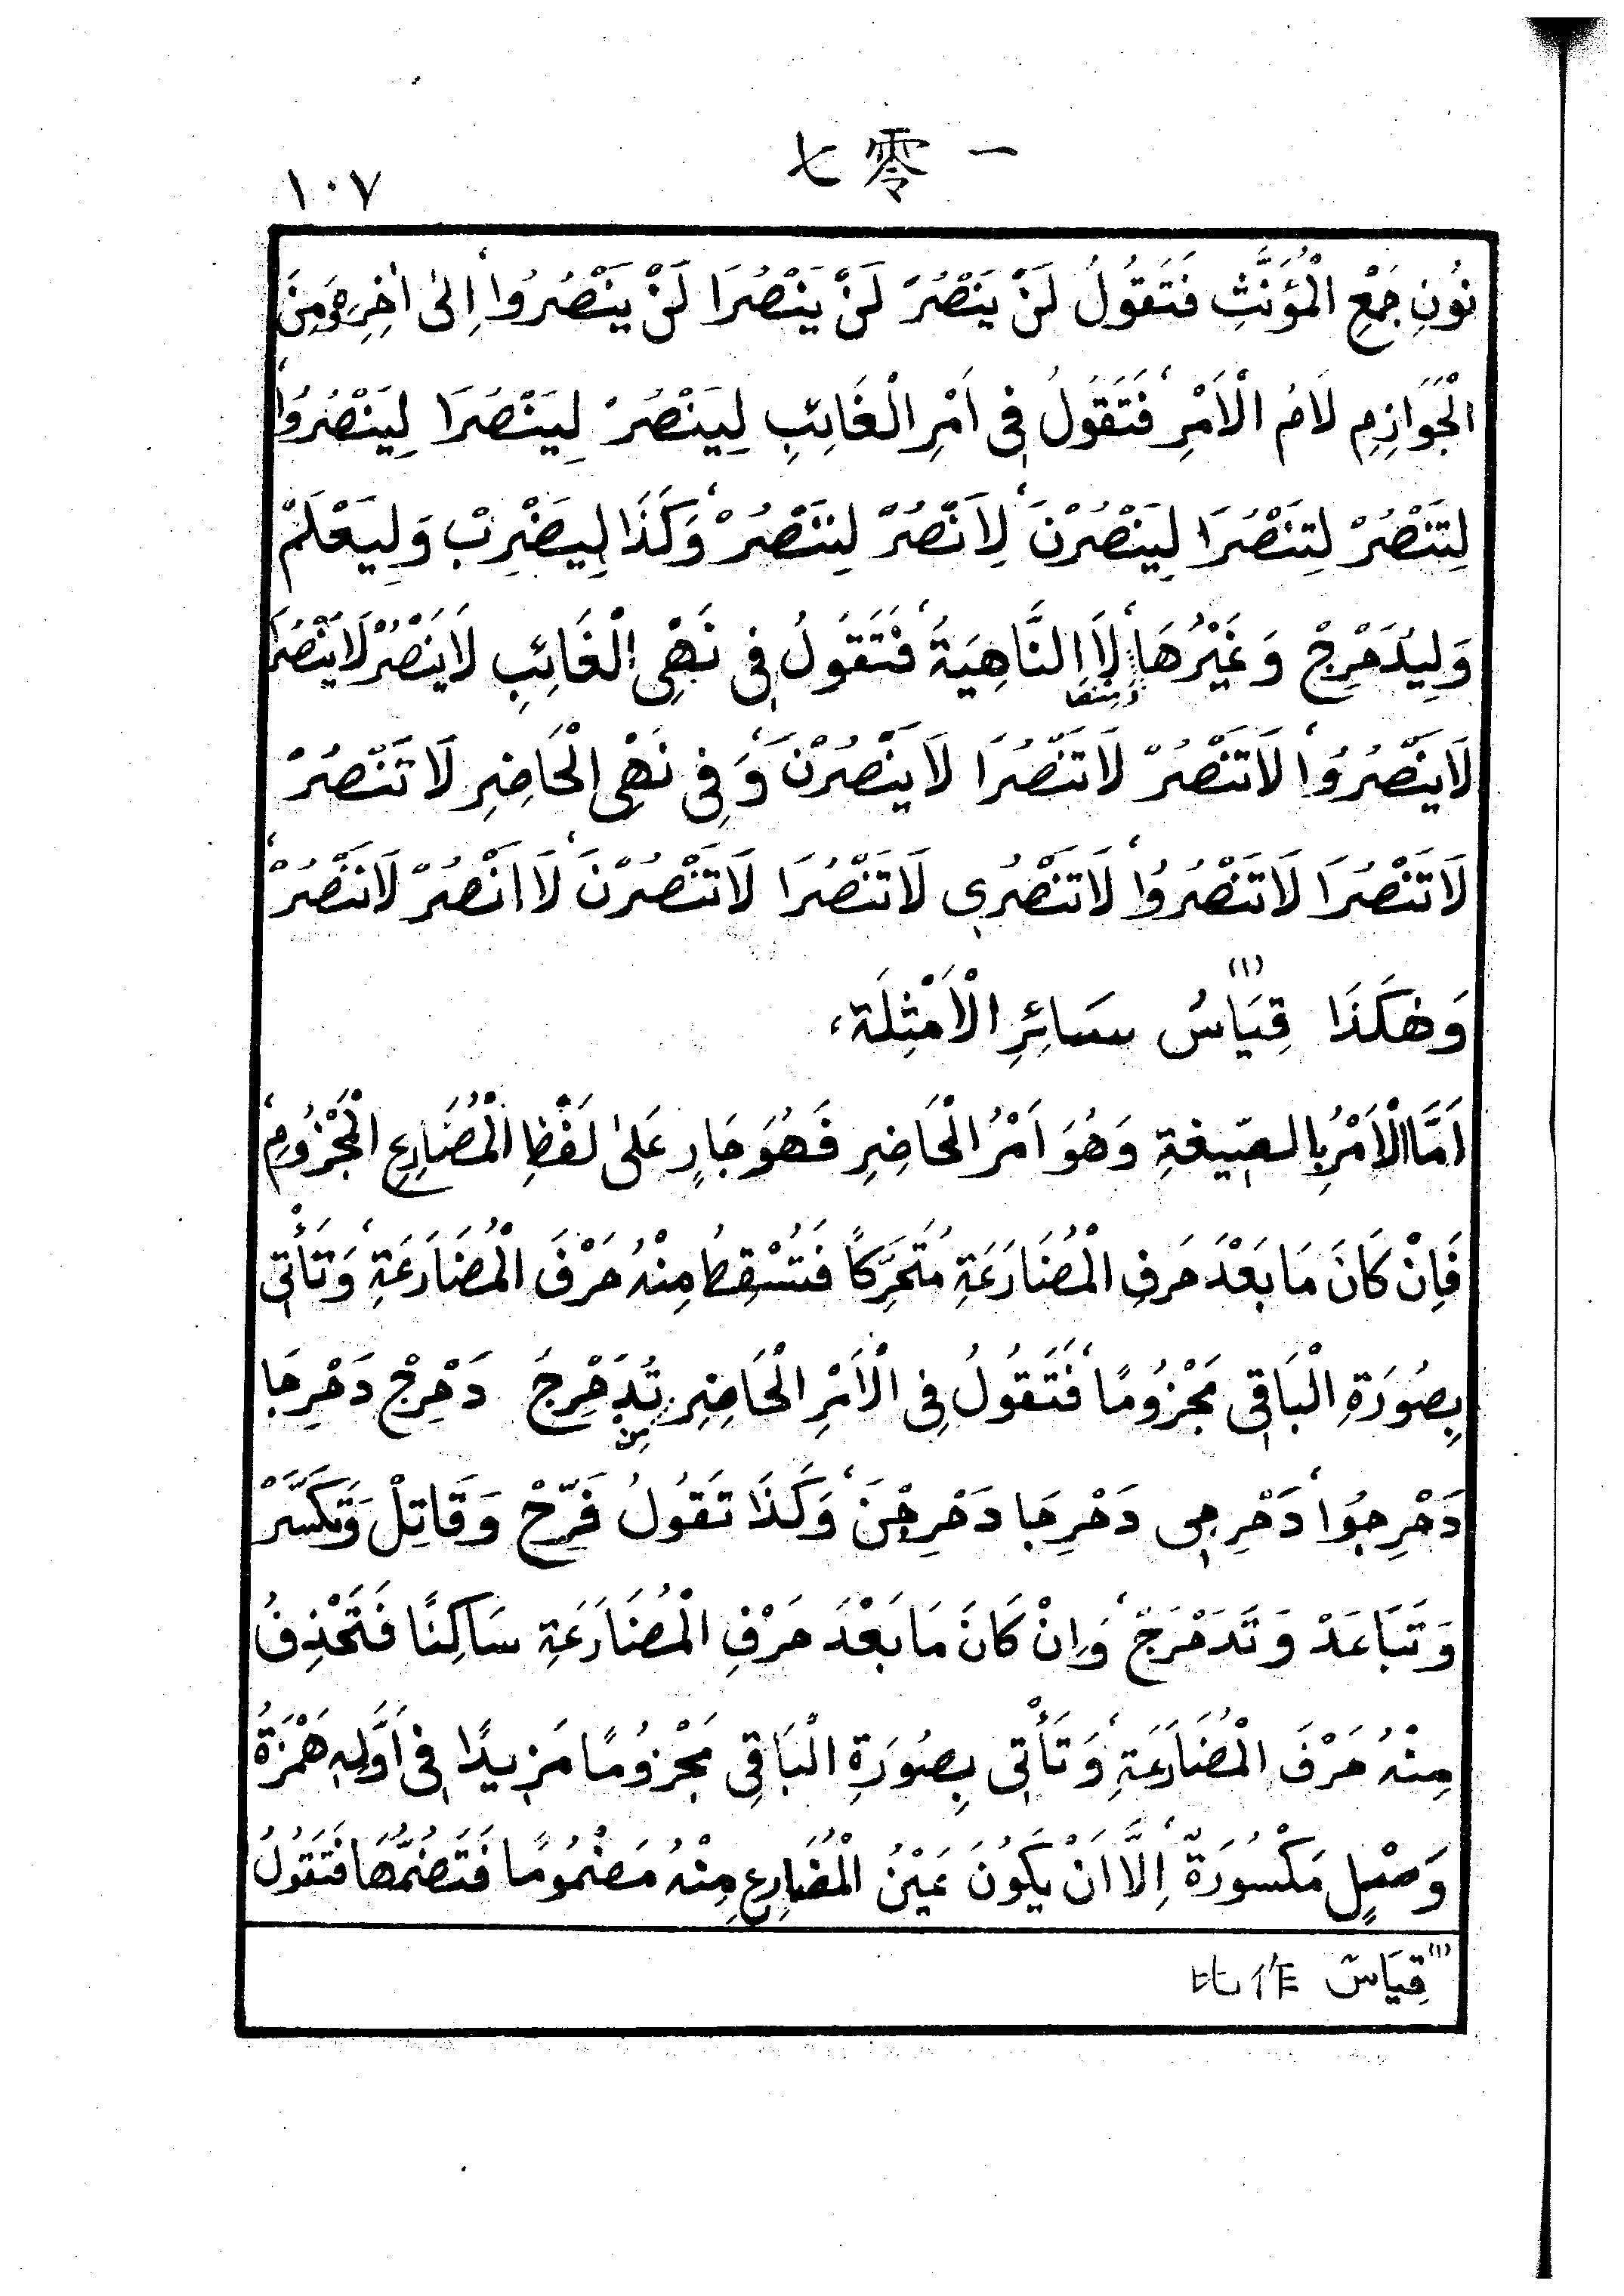 一零七
١٠٧
نُونِ جَمْعِ الْمُؤَنَّثِ فَتَقُولُ لَنْ يَنْصُرَ لَنْ يَنْصُرَا لَنْ يَنْصُرُوا، اِلىٰ اٰخِرِهِ وَمِنَ
الْجَوَازِمِ لَامُ الْاَمْرِ، فَتَقُولُ فِى اَمْرِ الْغَائِبِ لِيَنْصُرْ لِيَنْصُرَا لِيَنْصُرُوا،
لِتَنْصُرْ لِتَنْصُرَا لِيَنْصُرْنَ، لِاَنْصُرْ لِنَنْصُرْ، وَكَذَا لِيَضْرِبْ وَلِيَعْلَمْ
وَلِيُدَحْرِجْ وَغَيْرُهَا، وَمِنْهَا لَا النَّاهِيَةُ، فَتَقُولُ فِى نَهْىِ الْغَائِبِ لَايَنْصُرْ لَايَنْصُرَا
لَايَنْصُرُوا، لَاتَنْصُرْ لَاتَنْصُرَا لَايَنْصُرْنَ، وَفِى نَهْىِ الْحَاضِرِ لَاتَنْصُرْ
لَاتَنْصُرَا لَاتَنْصُرُوا، لَاتَنْصُرِى لَاتَنْصُرَا لَاتَنْصُرْنَ، لَا اَنْصُرْ لَانَنْصُرْ،
وَهٰكَذَا قِيَاسُ (١) سَائِرِ الْاَمْثِلَةِ،
اَمَّا الْاَمْرُ بِالصِّيغَةِ وَهُوَ اَمْرُ الْحَاضِرِ فَهُوَ جَارٍ عَلىٰ لَفْظِ الْمُضَارِعِ الْمَجْزُومِ،
فَاِنْ كَانَ مَا بَعْدَ حَرفِ الْمُضَارَعَةِ مُتَحَرِّكاً فَتُسْقِطُ مِنْهُ حَرْفَ الْمُضَارَعَةِ، وَتَأْتِى
بِصُورَةِ الْبَاقِى مَجْزُومًا، فَتَقُولُ فِى الْاَمْرِ الْحَاضِرِ مِنْ تُدَحْرِجُ دَحْرِجْ دَحْرِجَا
دَحْرِجُوا، دَحْرِجِى دَحْرِجَا دَحْرِجْنَ، وَكَذَا تَقُولُ فَرِّحْ وَقَاتِلْ وَتَكَسَّرْ
وَتَبَاعَدْ وَتَدَحْرَجْ، وَاِنْ كَانَ مَا بَعْدَ حَرْفِ الْمُضَارَعَةِ سَاكِنًا فَتَحْذِفُ
مِنْهُ حَرْفَ الْمُضَارَعَةِ، وَتَأْتِى بِصُورَةِ الْبَاقِى مَجْزُومًا مَزِيدًا فِى اَوَّلِهِ هَمْزَةُ
وَصْلٍ مَكْسُورَةٌ، اِلَّا اَنْ يَكُونَ عَيْنُ الْمُضَارِعِ مِنْهُ مَضْمُومًا فَتَضُمُّهَا فَتَقُولُ
(١) قِيَاسٌ 比作